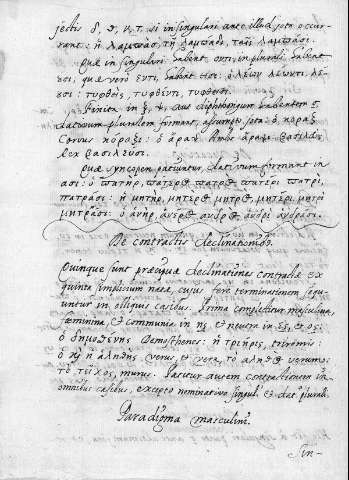 jectis δ, θ, ν, τ. si in singulari ante illud iota occur-
rant: ἡ λαμπὰς, τῇ λαμπάδι, ταῖς λαμπάσι.
Quæ in singulari habent οντι, in plurali habent
υσι, quæ vero εντι, habent εισι: ὁ λέων λέοντι, λέ-
υσι: τυφθείς, τυφθέντι, τυφθεῖσι.
Finita in ξ, ψ, aut diphthongum habentem
dativum pluralem firmant, assumpto iota: ὁ κόραξ
Corvus κόραξι: ὁ ἄραψ Arabs ἄραψι βασιλεὺς
Rex βασιλεῦσι.
Quæ syncopem patiuntur, dativum firmant in
ασι: ὁ πατὴρ, πατέρος πατρὸς πατέρι πατρὶ,
πατράσι: ἡ μήτηρ, μητέρος μητρὸς, μητέρι, μητρὶ
μητράσι: ὁ ἀνὴρ, ἀνέρος ἀνδρὸς ἀνδρὶ ἀνδράσι.
De contractis declinationibus.
Quinque sunt præcipuæ declinationes contractæ ex
quinta simplicium natæ, cujus terminationem sequ-
untur in obliquis casibus. Prima complectitur masculina,
fæminina, et communia in ης et neutra in ες, et ος:
ὁ δημοσθένης Demosthenes: ἡ τριήρις, triremis:
ὁ καὶ ἡ ἀληθὴς verus, et vera, τὸ ἀληθὲς verum:
τὸ τεῖχος, murus. Patitur autem contractionem in
omnibus casibus, excepto nominativo singul. et dat. plurali.
Paradigma masculini.
Sin-